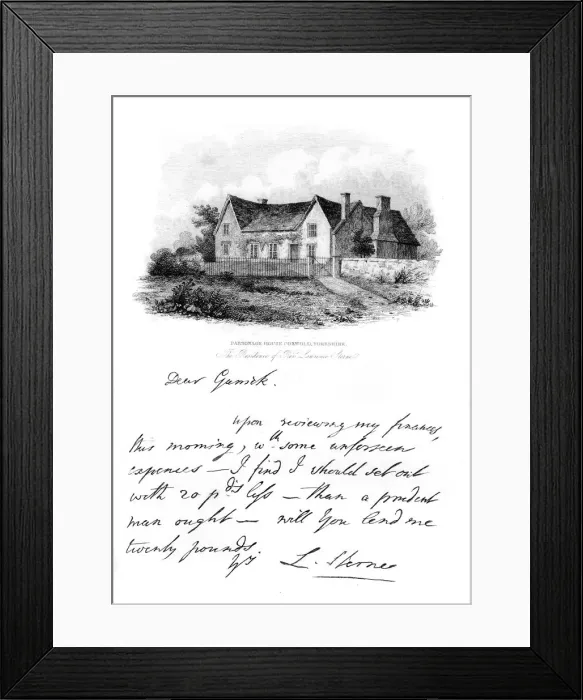 PARSONAGE HOUSE COXWOLD, YORKSHIRE.
(The Residence of Rev. Laurence Sterne)
Dear Garrick.
upon reviewing my finances,
this morning, wth some unforseen
expences — I find I should set out
with 20 pds less — than a prudent
man ought — will You lend me
twenty pounds.
Yrs. L. Sterne